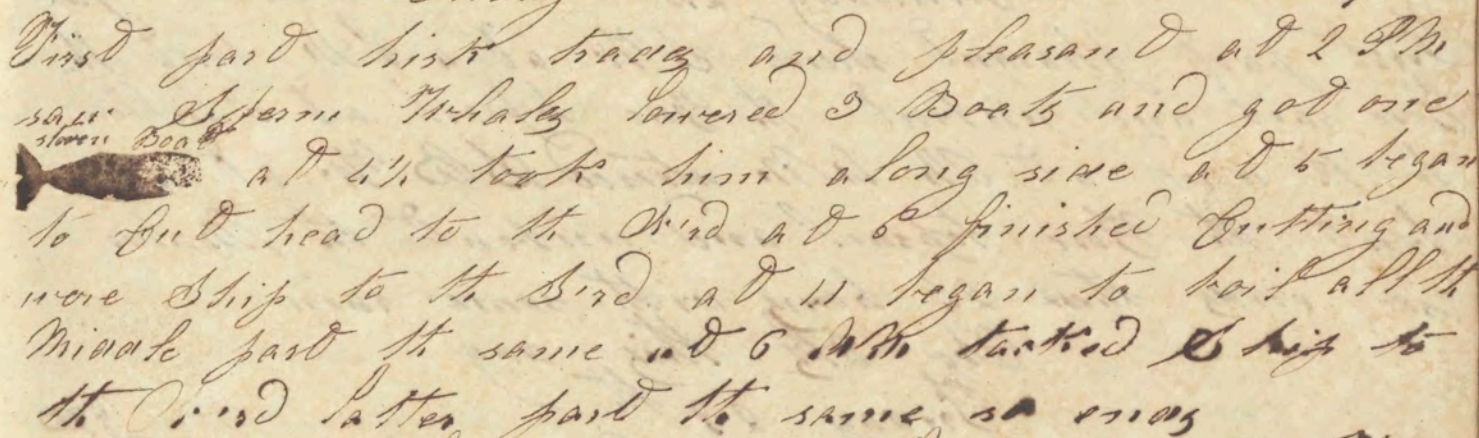 First part brisk trades and pleasant at 2 PM
saw Sperm Whales lowered 3 Boats and got one
stoven Boat
at 4½ took him along side at 5 began
to Cut head to the N'rd at 6 finished Cutting and
wore Ship to the S'rd at 11 began to boil all th
Middle part th same at 6 AM tacked Ship to
th N'rd latter part th same so ends